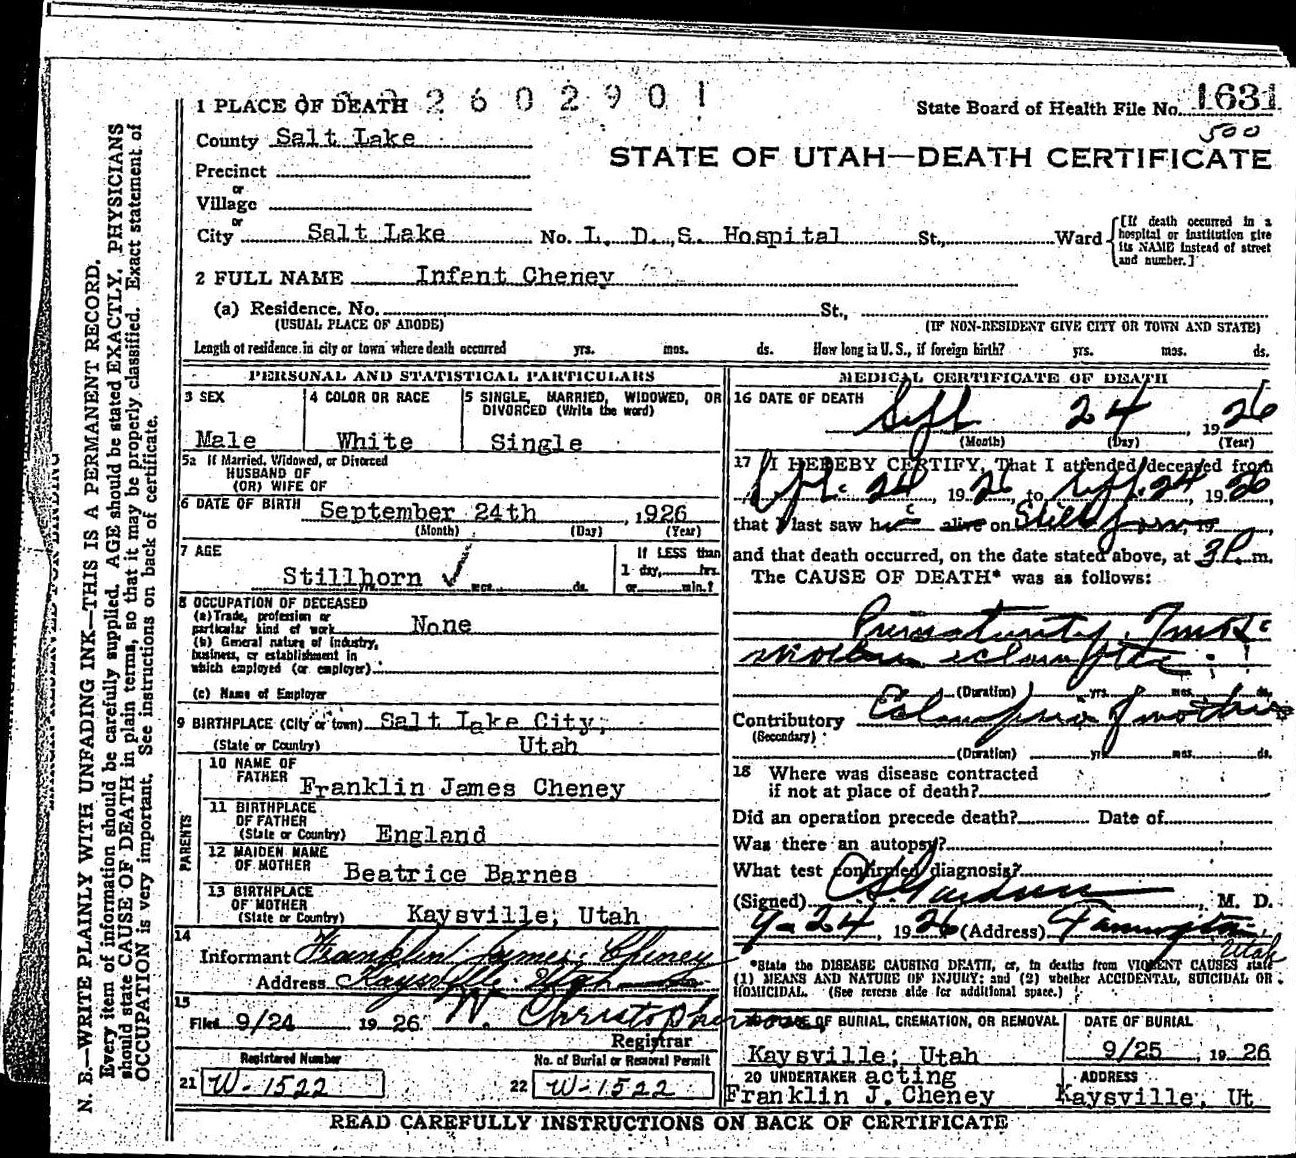 1 PLACE OF DEATH 2 6 0 2 9 0 1
State Board of Health File No. 1631
500
County Salt Lake
STATE OF UTAH—DEATH CERTIFICATE
Precinct
or
Village
or
City Salt Lake No. L. D. S. Hospital St., Ward
[If death occurred in a
hospital or institution give
its NAME instead of street
and number.]
2 FULL NAME Infant Cheney
(a) Residence. No. St.,
(USUAL PLACE OF ABODE) (IF NON-RESIDENT GIVE CITY OR TOWN AND STATE)
Length of residence in city or town where death occurred yrs. mos. ds. How long in U. S., if foreign birth? yrs. mos. ds.
PERSONAL AND STATISTICAL PARTICULARS
3 SEX 4 COLOR OR RACE 5 SINGLE, MARRIED, WIDOWED, OR
DIVORCED (Write the word)
Male White Single
5a If Married, Widowed, or Divorced
HUSBAND OF
(OR) WIFE OF
6 DATE OF BIRTH September 24th, 1926
(Month) (Day) (Year)
7 AGE If LESS than
Stillborn ✓ 1 day, hrs.
yrs. mos. ds. or min.?
8 OCCUPATION OF DECEASED
(a) Trade, profession or
particular kind of work None
(b) General nature of industry,
business, or establishment in
which employed (or employer)
(c) Name of Employer
9 BIRTHPLACE (City or town) Salt Lake City,
(State or Country) Utah
PARENTS
10 NAME OF
FATHER Franklin James Cheney
11 BIRTHPLACE
OF FATHER
(State or Country) England
12 MAIDEN NAME
OF MOTHER Beatrice Barnes
13 BIRTHPLACE
OF MOTHER
(State or Country) Kaysville, Utah
14
Informant Franklin James Cheney
Address Kaysville Utah
15
Filed 9/24 19 26 W. Christopherson
Registrar
Registered Number No. of Burial or Removal Permit
21 W-1522 22 W-1522
MEDICAL CERTIFICATE OF DEATH
16 DATE OF DEATH
Sept 24, 1926
(Month) (Day) (Year)
17 I HEREBY CERTIFY, That I attended deceased from
Sept. 24, 1926, to Sept. 24, 1926
that I last saw h alive on Still born, 19
and that death occurred, on the date stated above, at 3 P. m.
The CAUSE OF DEATH* was as follows:
Prematurity.
mother eclamptic
(Duration) yrs. mos. ds.
Contributory Eclampsia of mother
(Secondary)
(Duration) yrs. mos. ds.
18 Where was disease contracted
if not at place of death?
Did an operation precede death? Date of
Was there an autopsy?
What test confirmed diagnosis?
(Signed) Gardner, M. D.
9-24, 1926 (Address) Farmington,
Utah
*State the DISEASE CAUSING DEATH, or, in deaths from VIOLENT CAUSES state
(1) MEANS AND NATURE OF INJURY; and (2) whether ACCIDENTAL, SUICIDAL OR
HOMICIDAL. (See reverse side for additional space.)
OF BURIAL, CREMATION, OR REMOVAL DATE OF BURIAL
Kaysville, Utah 9/25, 19 26
20 UNDERTAKER acting ADDRESS
Franklin J. Cheney Kaysville, Ut
READ CAREFULLY INSTRUCTIONS ON BACK OF CERTIFICATE
N. B.—WRITE PLAINLY WITH UNFADING INK—THIS IS A PERMANENT RECORD.
Every item of information should be carefully supplied. AGE should be stated EXACTLY. PHYSICIANS
should state CAUSE OF DEATH in plain terms, so that it may be properly classified. Exact statement of
OCCUPATION is very important. See instructions on back of certificate.